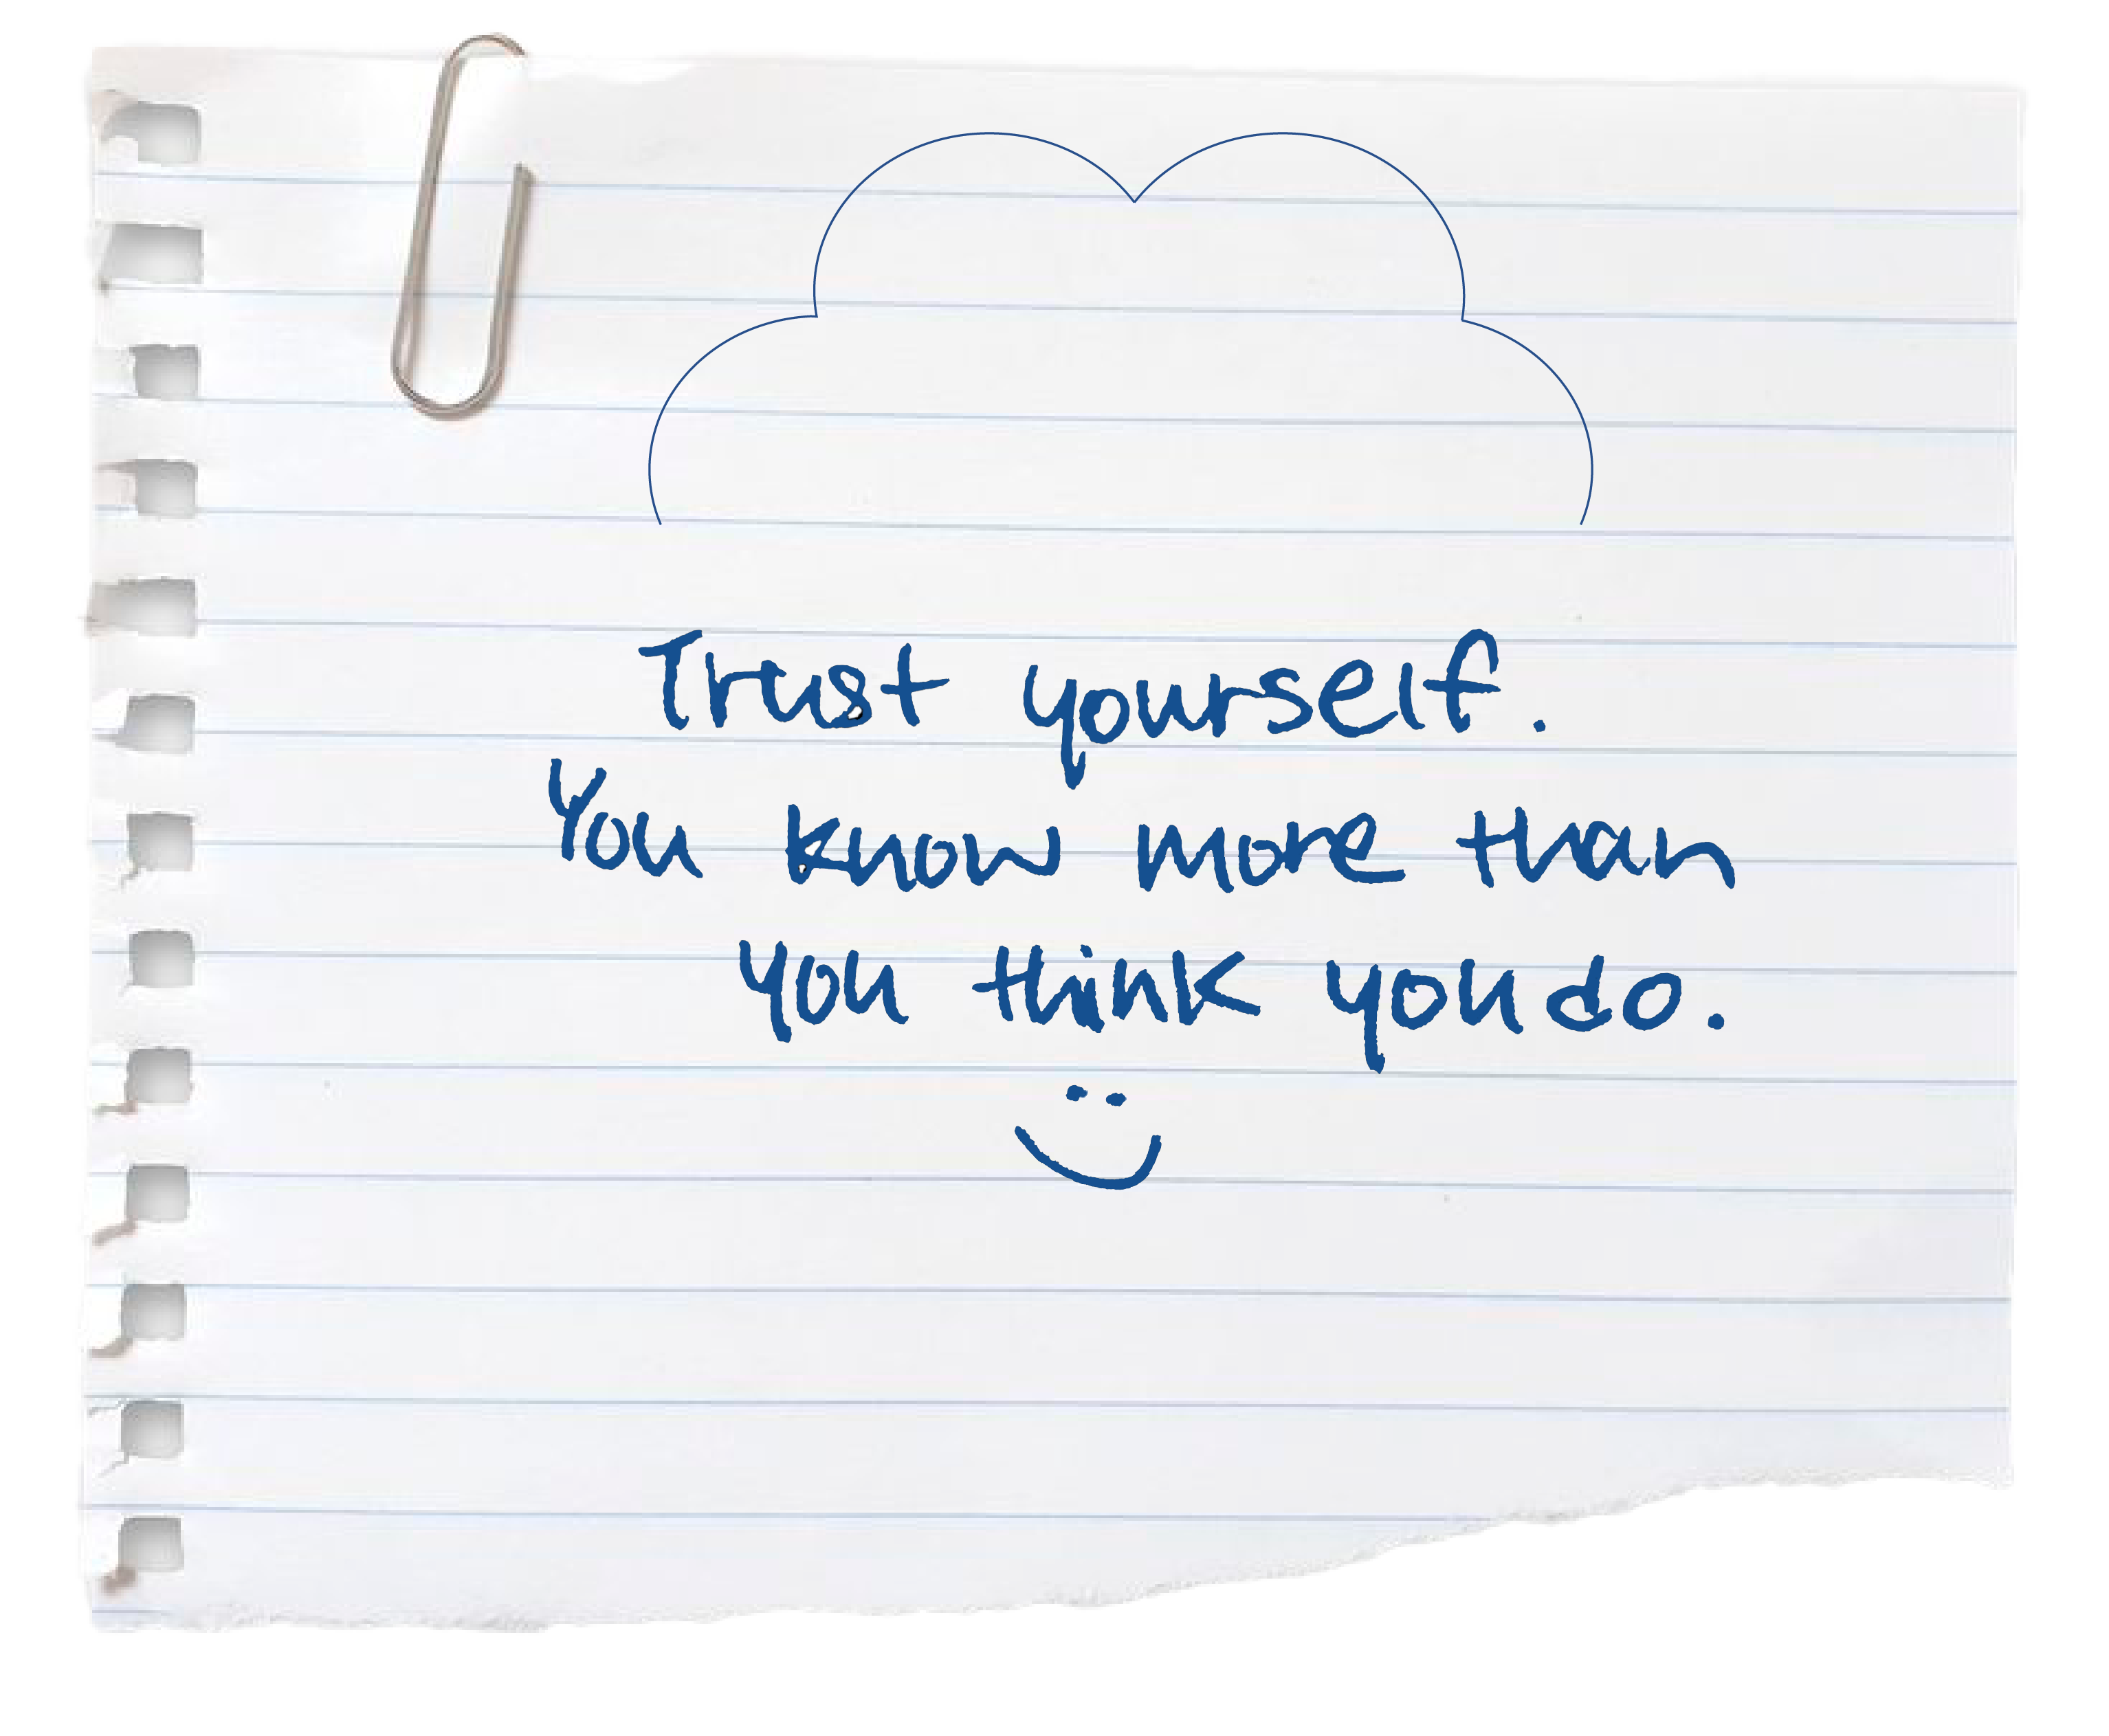 Trust yourself.
You know more than
you think you do.